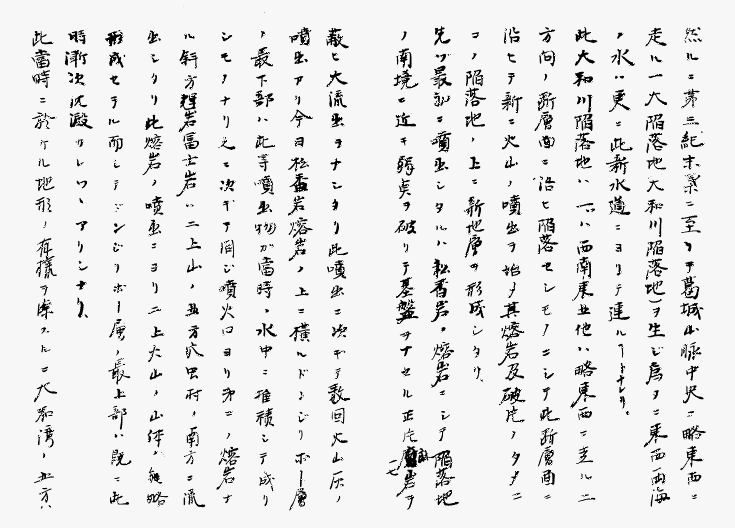 然ルニ第三紀末葉ニ至リテ葛城山脈中央ニ略東西ニ
走ル一大陥落地(大和川陥落地)ヲ生ジ為ニ東西両海
ノ水ハ更ニ此新水道ニヨリテ連ル
此大和川陥落地ハ一ハ西南東北他ハ略東西ニ走ル二
方向ノ断層面ニ沿ヒ陥落セシモノニシテ此断層面ニ
沿ヒテ新ニ火山ノ噴出ヲ始メ其熔岩及破片ノタメニ
コノ陥落地ノ上ニ新地層ヲ形成シタリ、
先ヅ最初ニ噴出シタルハ松香岩ノ熔岩ニシテ陥落地
ノ南境ニ近キ弱点ヲ破リテ基盤ヲナセル正片麻岩ヲ
蔽ヒ大流出ヲナシタリ此噴出ニ次ギテ数回火山灰ノ
噴出アリ今日松香岩熔岩ノ上ニ横ルドンヅリボー層
ノ最下部ハ此等噴出物ガ當時ノ水中ニ堆積シテ成リ
シモノナリ之ニ次ギテ同ジ噴火口ヨリ第二ノ熔岩ナ
ル斜方輝岩富士岩ハ二上山ノ北方穴虫村ノ南方ニ流
出シタリ此熔岩ノ噴出ニヨリ二上火山ノ山体ノ概略
形成セラル而シテドンヅリボー層ノ最上部ハ既ニ此
時漸次沈澱サレツヽアリシナリ、
此當時ニ於ケル地形ノ有様ヲ案ズルニ大和湾ノ北方ハ